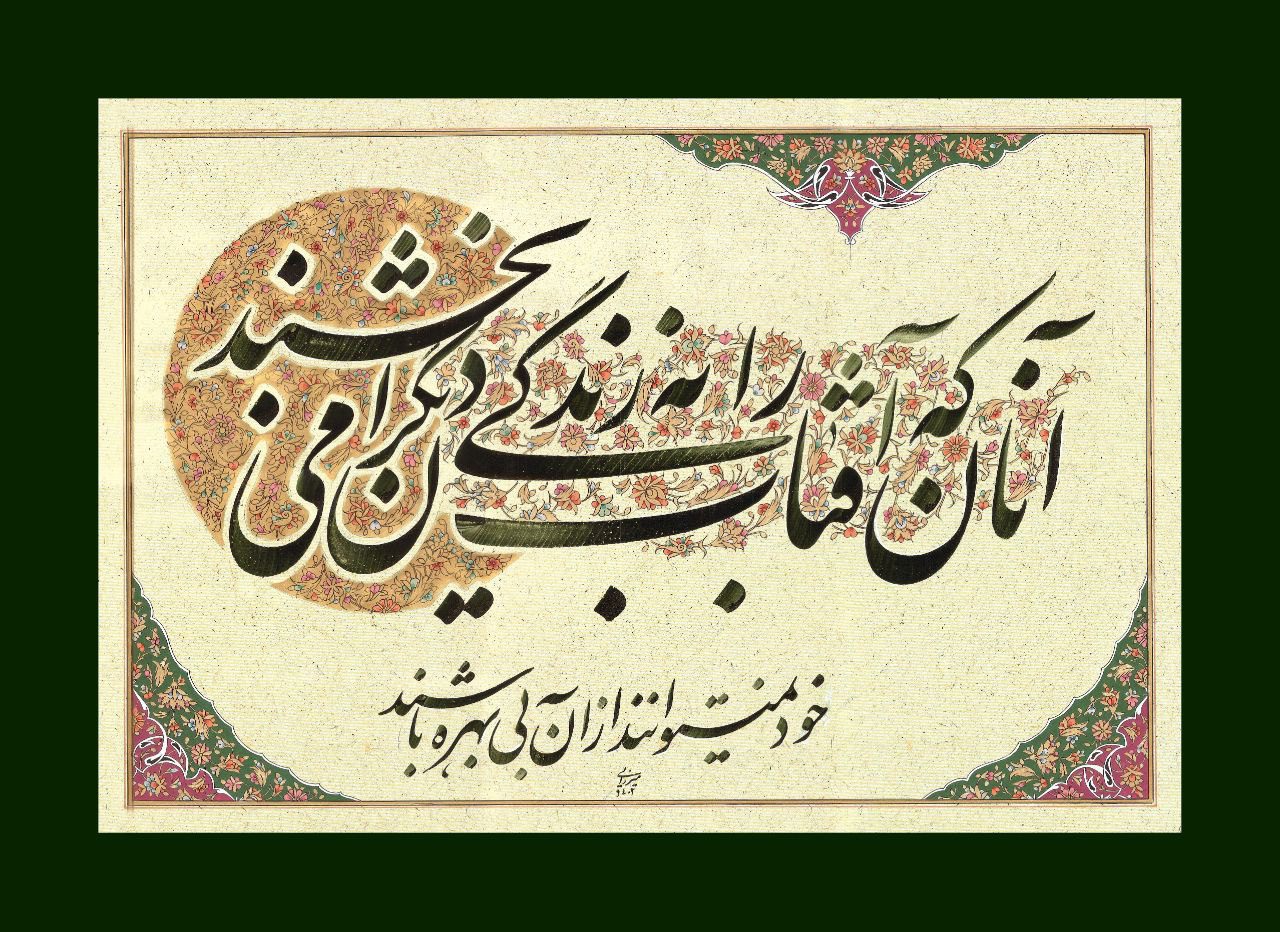 آنان که آفتاب را به زندگی دیگران می بخشند
خود نمیتوانند از آن بی بهره باشند